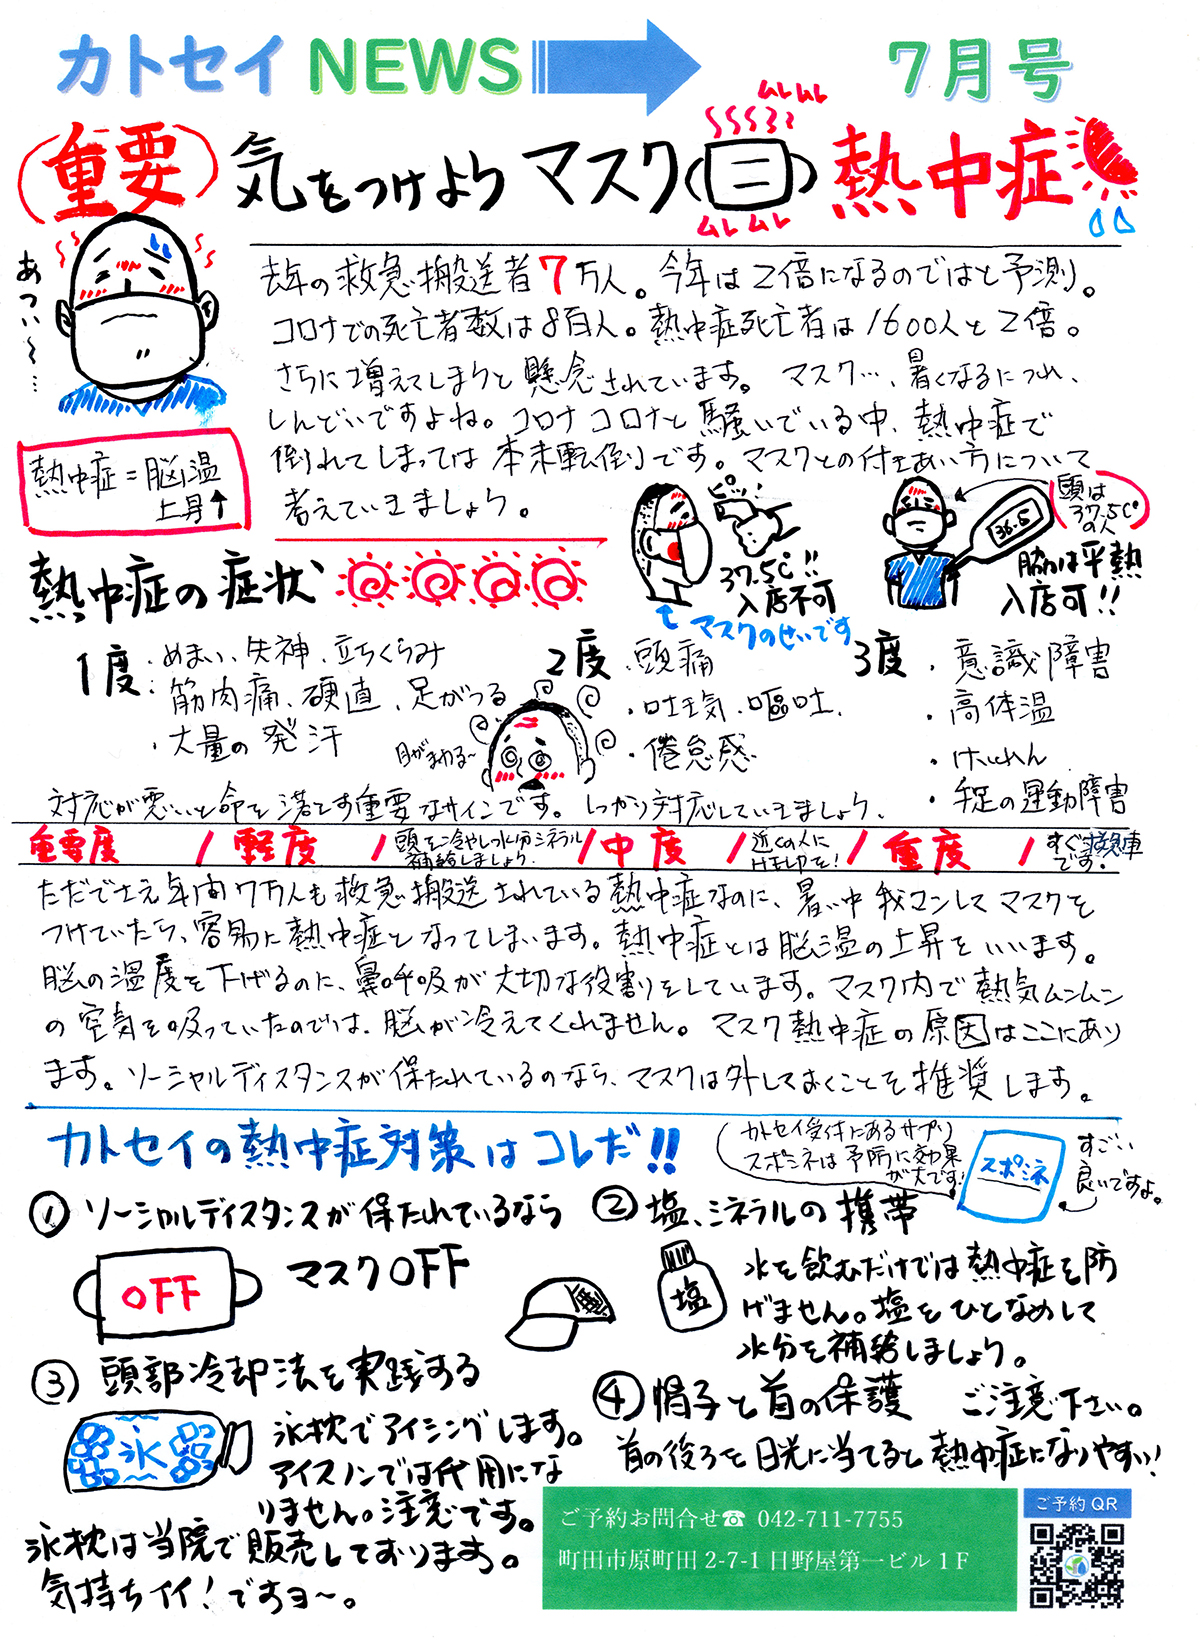 カトセイ NEWS 7月号
重要 気をつけよう マスク 熱中症
ムレムレ
ムレムレ
あつい〜…
去年の救急搬送者7万人。今年は2倍になるのではと予測。
コロナでの死亡者数は8百人。熱中症死亡者は1600人と2倍。
さらに増えてしまうと懸念されています。マスク…、暑くなるにつれ、
しんどいですよね。コロナコロナと騒いでいる中、熱中症で
倒れてしまっては本末転倒です。マスクとの付きあい方について
考えていきましょう。
熱中症=脳温
上昇↑
37.5℃!!
入店不可
マスクのせいです
36.5
頭は
37.5C°
の人
脇は平熱
入店可!!
熱中症の症状
1度・めまい、失神、立ちくらみ
・筋肉痛、硬直、足がつる
・大量の発汗
目がまわる〜
2度・頭痛
・吐気、嘔吐、
・倦怠感
3度・意識障害
・高体温
・けいれん
・手足の運動障害
対応が悪いと命を落とす重要なサインです。しっかり対応していきましょう、
重要度 / 軽度 / 頭を冷やし水分ミネラル
補給しましょう。
/ 中度 / 近くの人に
HELPを!
/ 重度 / すぐ救急車
です。
ただでさえ年間7万人も救急搬送されている熱中症なのに、暑い中我マンしてマスクを
つけていたら、容易に熱中症となってしまいます。熱中症とは脳温の上昇をいいます。
脳の温度を下げるのに、鼻呼吸が大切な役割りをしています。マスク内で熱気ムンムン
の空気を吸っていたのでは、脳が冷えてくれません。マスク熱中症の原因はここにあり
ます。ソーシャルディスタンスが保たれているのなら、マスクは外しておくことを推奨します。
カトセイの熱中症対策はコレだ!!
カトセイ受付にあるサプリ
スポミネは予防に効果
が大です!
スポミネ
すごい
良いですよ。
① ソーシャルディスタンスが保たれているなら
マスクOFF
OFF
② 塩、ミネラルの携帯
塩
水を飲むだけでは熱中症を防
げません。塩をひとなめして
水分を補給しましょう。
③ 頭部冷却法を実践する
氷
氷枕でアイシングします。
アイスノンでは代用にな
りません。注意です。
氷枕は当院で販売しております。
気持ちイイ!ですヨ〜。
④ 帽子と首の保護 ご注意下さい。
首の後ろを日光に当てると熱中症になりやすい!
ご予約お問合せ☎ 042-711-7755
町田市原町田 2-7-1 日野屋第一ビル 1F
ご予約 QR